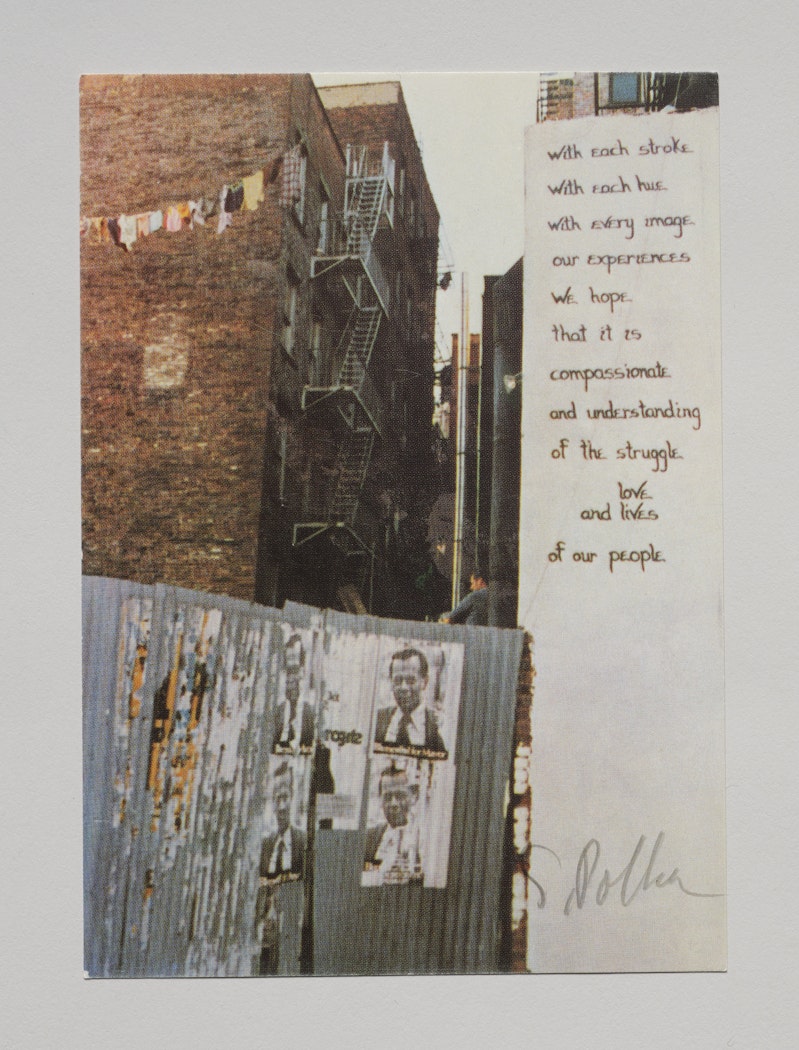 with each stroke
with each hue
with every image
our experiences
we hope
that it is
compassionate
and understanding
of the struggle
love
and lives
of our people
for Mayor
S Polke